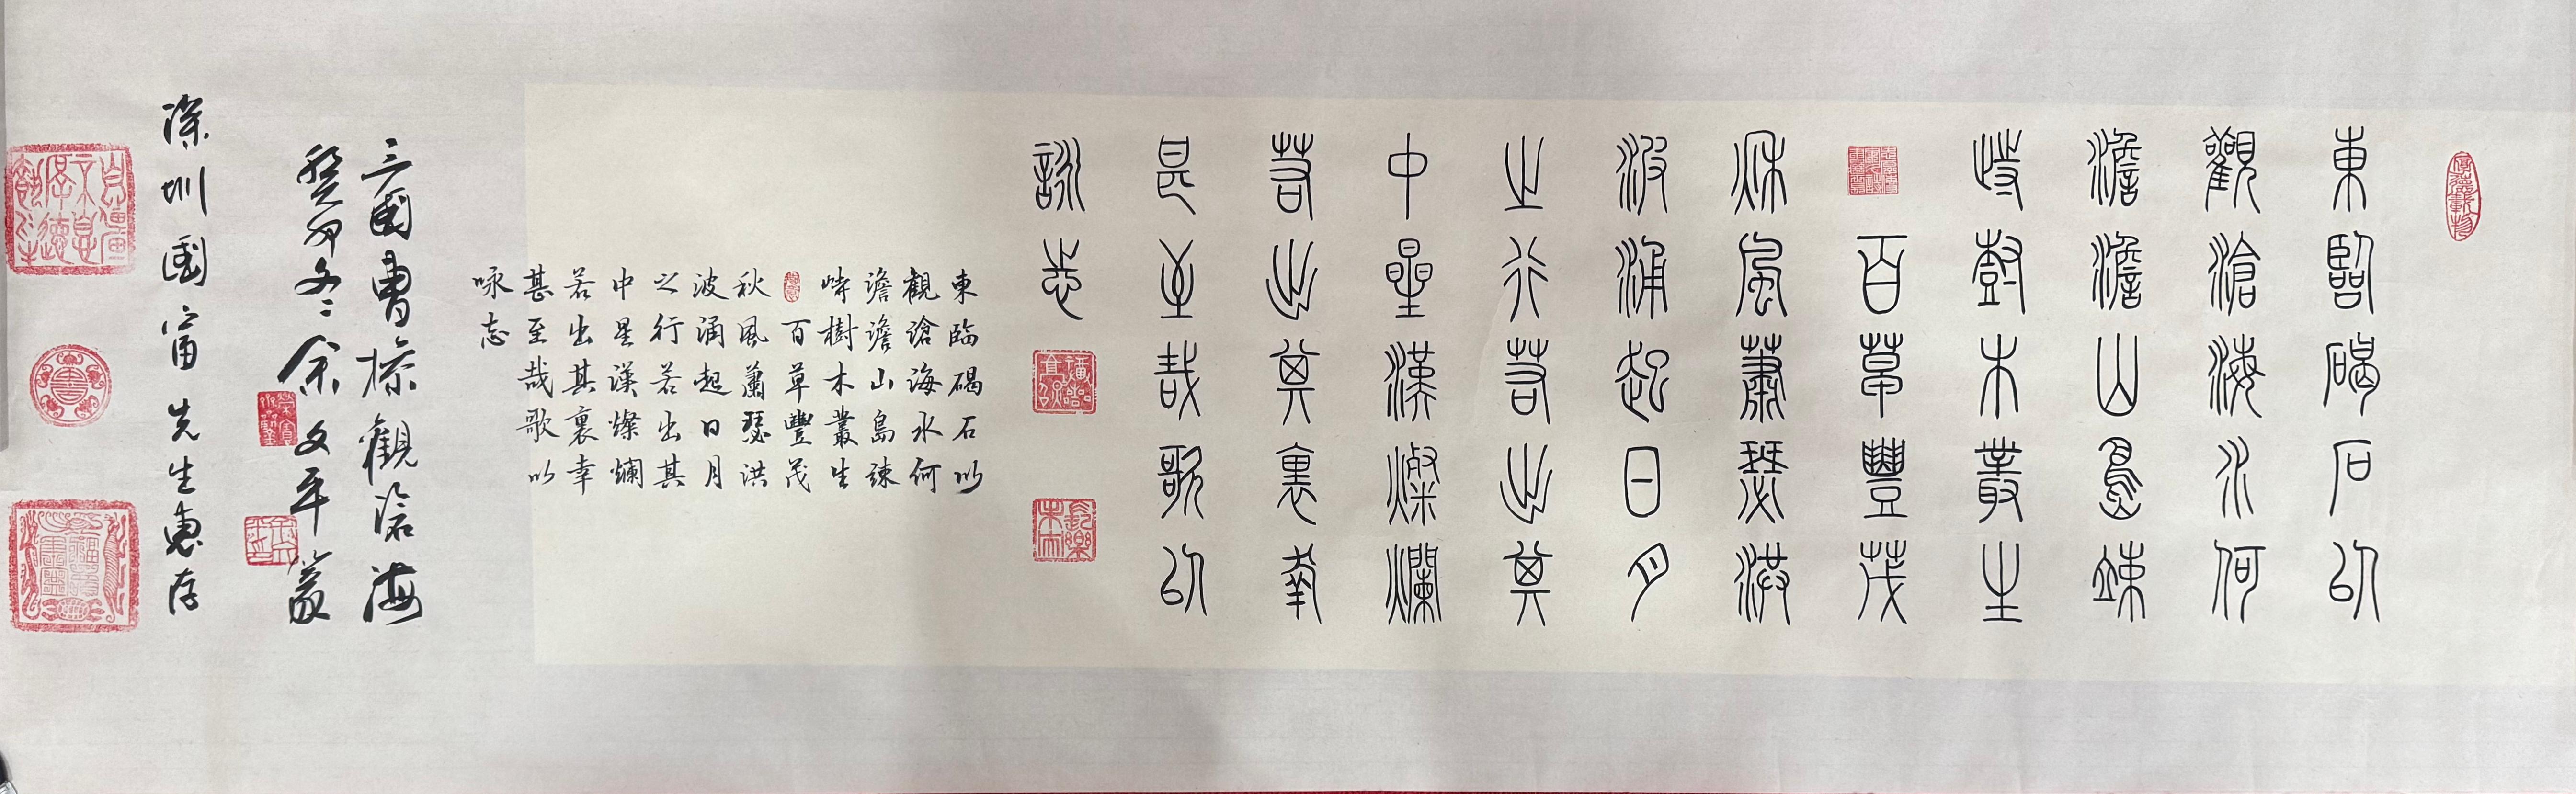 厚德載物
東臨碣石以
觀滄海水何
澹澹山島竦
峙樹木叢生
百草豐茂
秋風蕭瑟洪
波涌起日月
之行若出其
中星漢燦爛
若出其裏幸
甚至哉歌以
詠志
長樂未央
東臨碣石以
觀滄海水何
澹澹山島竦
峙樹木叢生
百草豐茂
秋風蕭瑟洪
波涌起日月
之行若出其
中星漢燦爛
若出其裏幸
甚至哉歌以
咏志
三國曹操觀滄海
癸卯冬余文平篆
深圳國富先生惠存